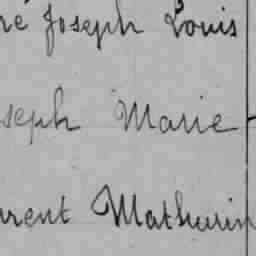 re Joseph Louis
seph Marie -
urent Mathurin